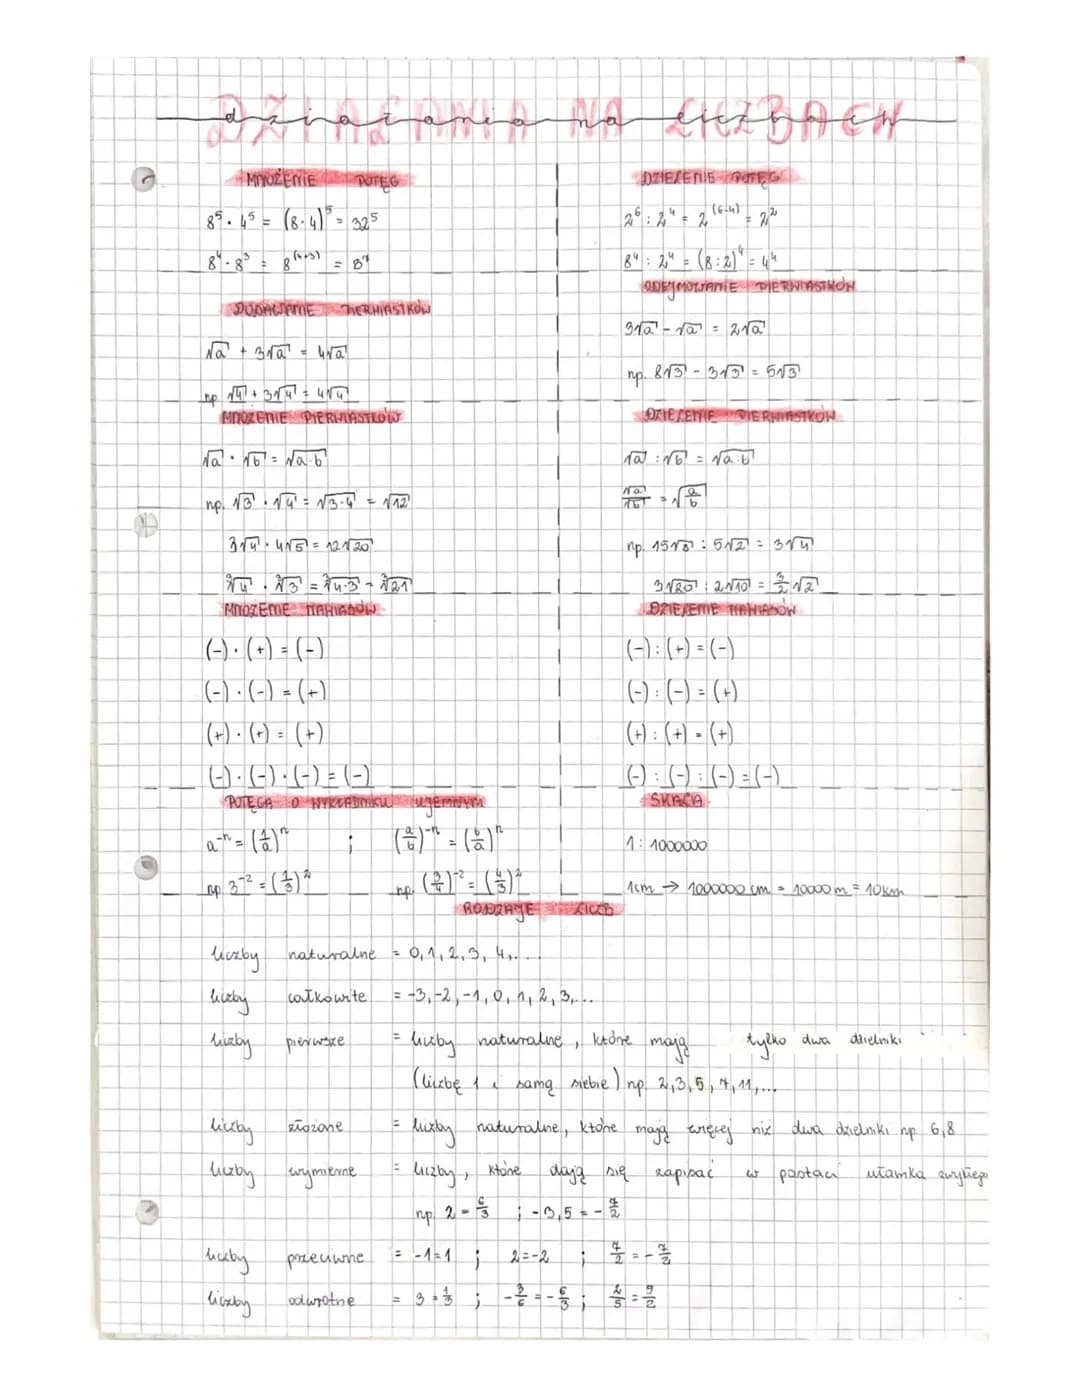 działania na liczbach
MNOŻENIE POTĘG
8⁵ · 4⁵ = (8·4)⁵ = 32⁵
8⁴ · 8³ = 8⁽⁴⁺³⁾ = 8⁷
DODAWANIE PIERWIASTKÓW
√a + 3√a = 4√a
np. √4 + 3√4 = 4√4
MNOŻENIE PIERWIASTKÓW
√a · √b = √a·b
np. √3 · √4 = √3·4 = √12
3√4 · 4√5 = 12√20
∛4 · ∛3 = ∛4·3 = ∛21
MNOŻENIE NAWIASÓW
(-) · (+) = (-)
(-) · (-) = (+)
(+) · (+) = (+)
(-) · (-) · (-) = (-)
POTĘGA O WYKŁADNIKU UJEMNYM
a⁻ⁿ = (1/a)ⁿ ; (a/b)⁻ⁿ = (b/a)ⁿ
np. 3⁻² = (1/3)² np. (3/4)⁻² = (4/3)²
DZIELENIE POTĘG
2⁶ : 2⁴ = 2⁽⁶⁻⁴⁾ = 2²
8⁴ : 2⁴ = (8:2)⁴ = 4⁴
ODEJMOWANIE PIERWIASTKÓW
3√a - √a = 2√a
np. 8√3 - 3√3 = 5√3
DZIELENIE PIERWIASTKÓW
√a : √b = √a:b
√a/√b = √a/b
np. 15√8 : 5√2 = 3√4
3√20 : 2√10 = 3/2 √2
DZIELENIE NAWIASÓW
(-) : (+) = (-)
(-) : (-) = (+)
(+) : (+) = (+)
(-) : (-) : (-) = (-)
SKALA
1 : 1000000
1cm → 1000000 cm = 10000 m = 10 km
RODZAJE LICZB
liczby naturalne = 0, 1, 2, 3, 4,...
liczby całkowite = -3, -2, -1, 0, 1, 2, 3,...
liczby pierwsze = liczby naturalne, które mają tylko dwa dzielniki
(liczbę 1 i samą siebie) np. 2, 3, 5, 7, 11,...
liczby złożone = liczby naturalne, które mają więcej niż dwa dzielniki np 6,8
liczby wymierne = liczby, które dają się zapisać w postaci ułamka zwykłego
np. 2 = 6/3 ; -3,5 = -7/2
liczby przeciwne = -1=1 ; 2=-2 ; 7/2 = -7/2
liczby odwrotne = 3 = 1/3 ; -3/6 = -6/3 ; 2/5 = 5/2